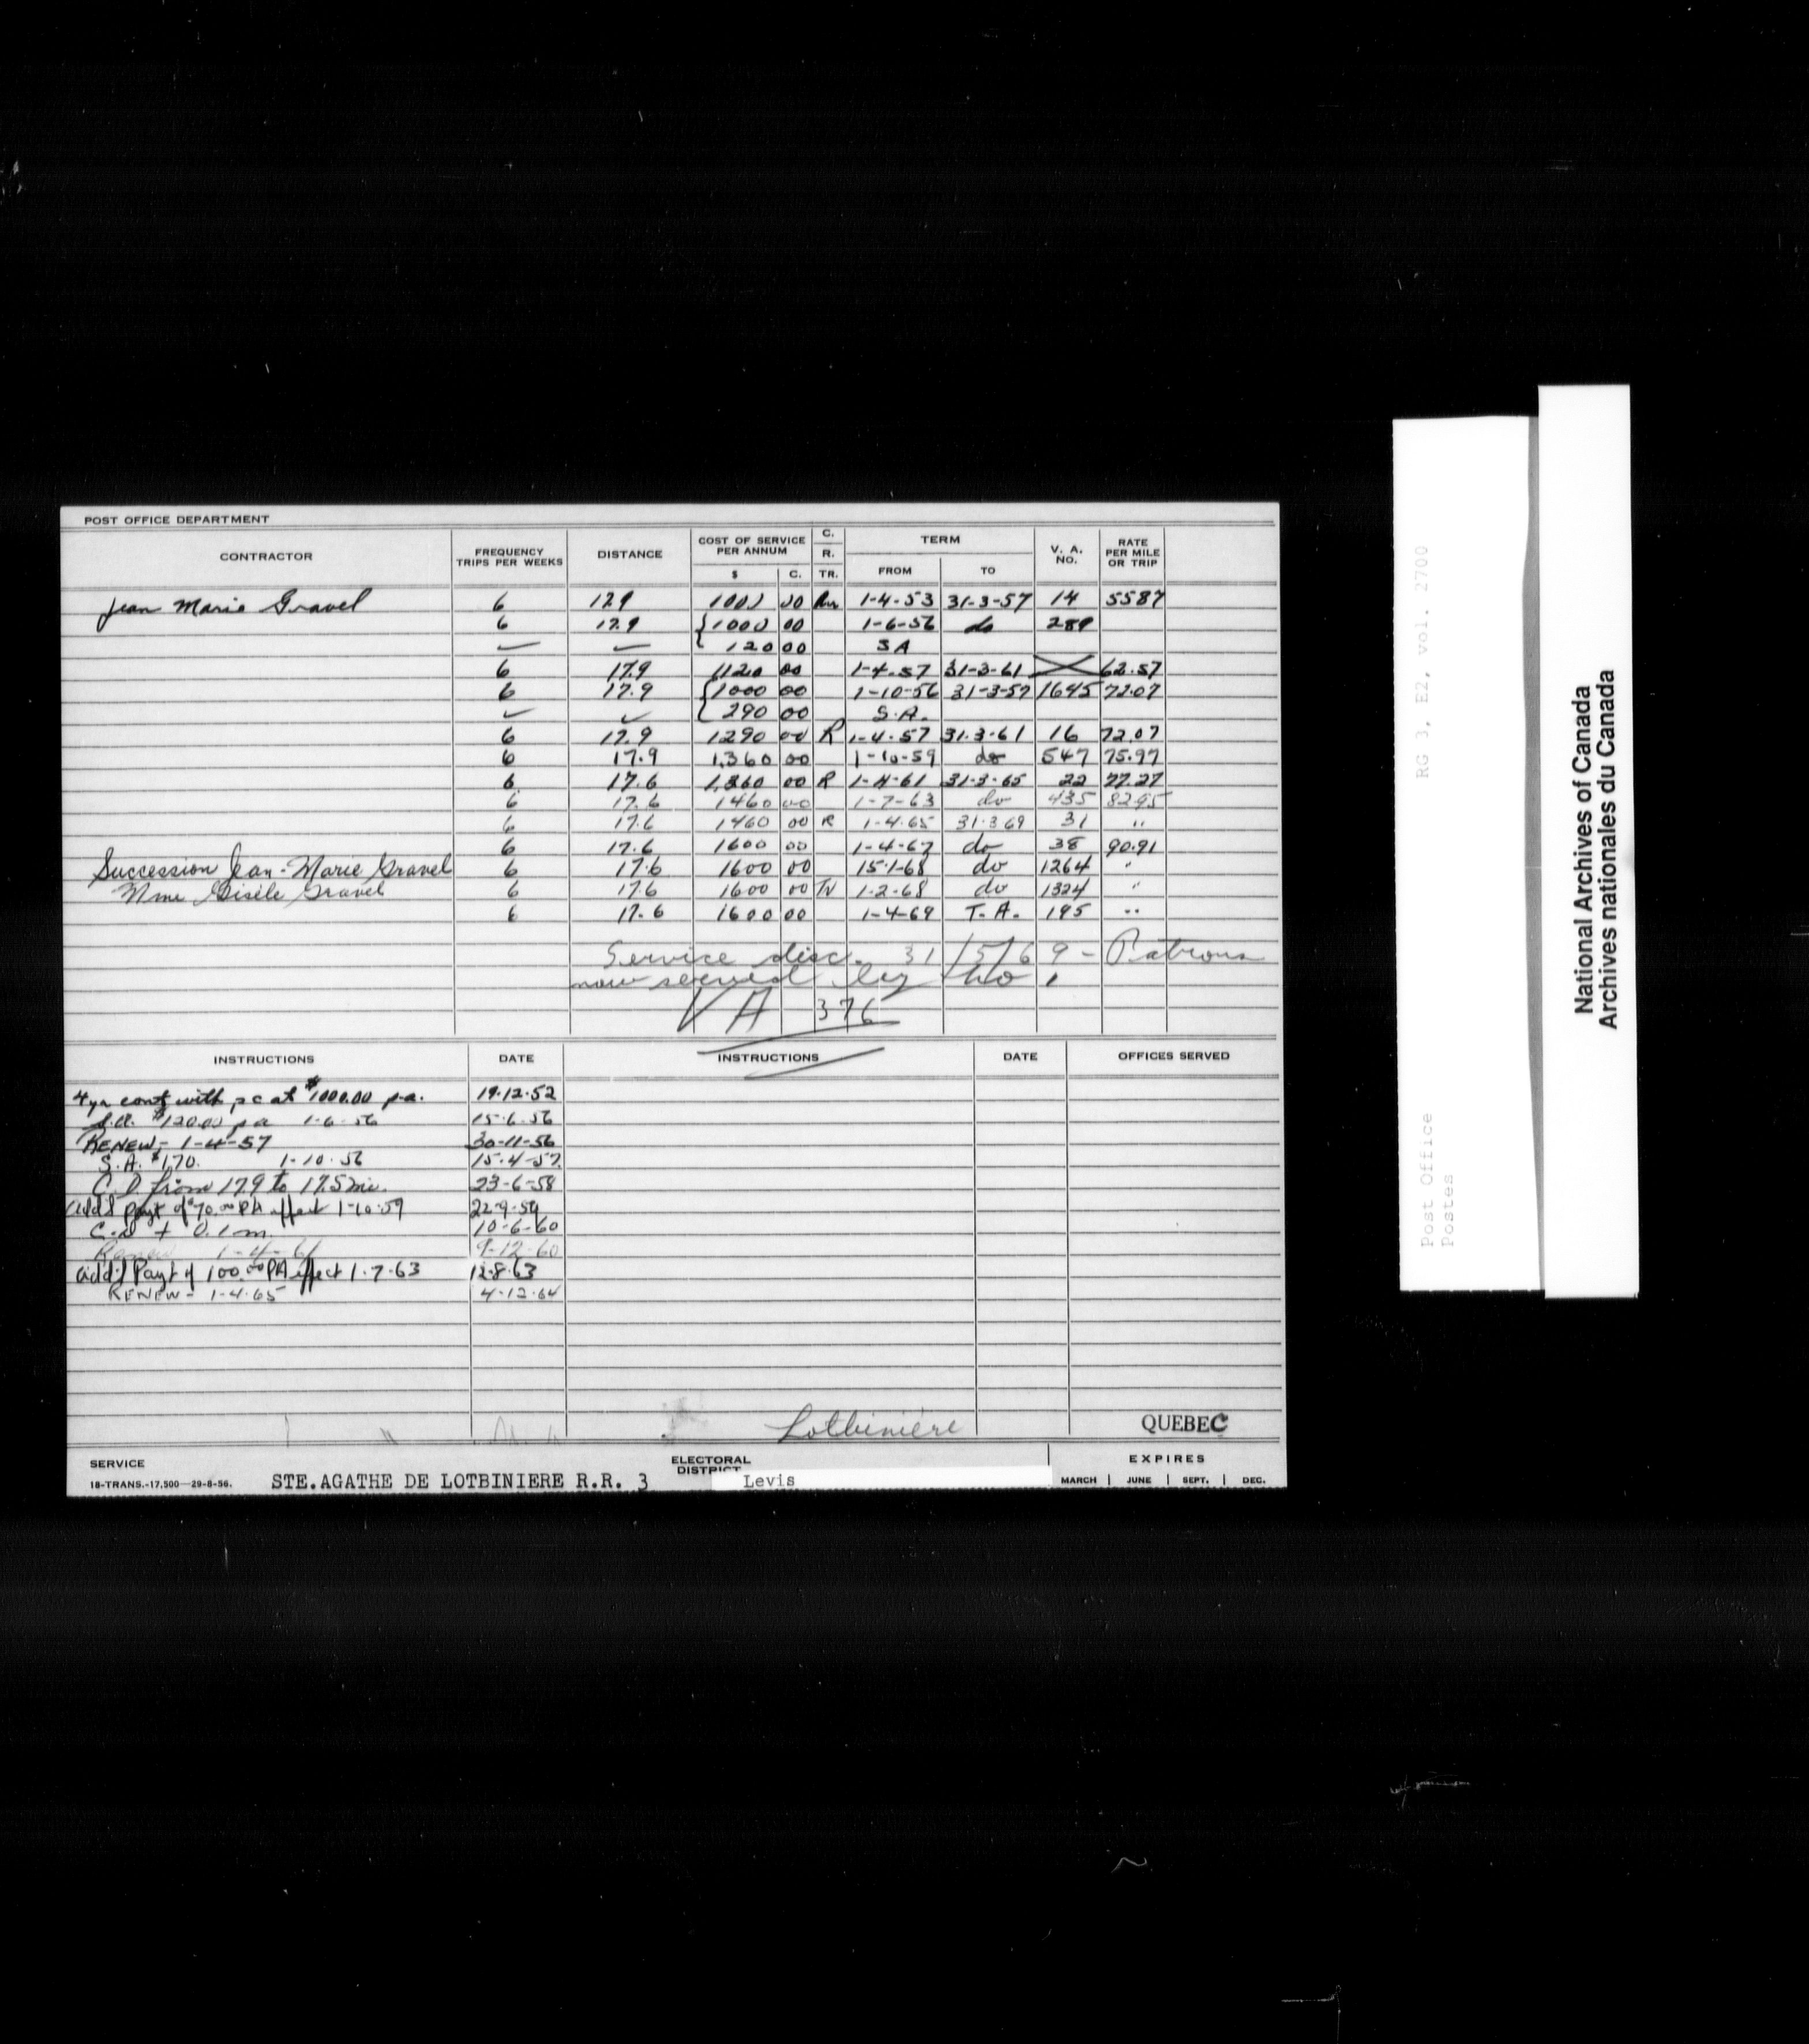 POST OFFICE DEPARTMENT
CONTRACTOR FREQUENCY TRIPS PER WEEKS DISTANCE COST OF SERVICE PER ANNUM $ C. C. R. TR. TERM FROM TO V. A. NO. RATE PER MILE OR TRIP
Jean Marie Gravel 6 17.9 1000 00 1-4-53 31-3-57 14 5587
6 17.9 1000 00 1-6-56 do 289
120 00 SA
6 17.9 1120 00 1-4-57 31-3-61 62.57
6 17.9 1000 00 1-10-56 31-3-57 1645 72.07
290 00 S.A.
6 17.9 1290 00 R 1-4-57 31.3.61 16 72.07
6 17.9 1,360 00 1-10-59 do 547 75.97
6 17.6 1,360 00 R 1-4-61 31-3-65 22 77.27
6 17.6 1460 00 1-7-63 do 435 82.95
6 17.6 1460 00 R 1-4-65 31.3.69 31 "
6 17.6 1600 00 1-4-67 do 38 90.91
Succession Jean-Marie Gravel 6 17.6 1600 00 15.1-68 do 1264 "
Mme Gisèle Gravel 6 17.6 1600 00 Tr 1-2-68 do 1324 "
6 17.6 1600 00 1-4-69 T.A. 195 "
Service disc. 31/5/69 - Patrons
now served by No 1
VA 376
INSTRUCTIONS DATE INSTRUCTIONS DATE OFFICES SERVED
4 yr cont with p c at $1000.00 p.a. 19.12.52
S.A. $120.00 p a 1-6-56 15-6-56
RENEW- 1-4-57 30-11-56
S.A. $170. 1-10-56 15-4-57
C.D. from 17.9 to 17.5 mi. 23-6-58
add'l payt of $70.00 PA effect 1-10-59 22-9-59
C.D + 0.1 m. 10-6-60
Renew 1-4-61 9-12-60
add'l Payt of 100.00 PA effect 1.7.63 12.8.63
RENEW- 1-4-65 4-12-64
Lotbinière QUEBEC
SERVICE ELECTORAL DISTRICT EXPIRES
18-TRANS.-17,500—29-8-56. STE.AGATHE DE LOTBINIERE R.R. 3 Levis MARCH JUNE SEPT. DEC.
RG 3, E2, vol. 2700
Post Office
Postes
National Archives of Canada
Archives nationales du Canada